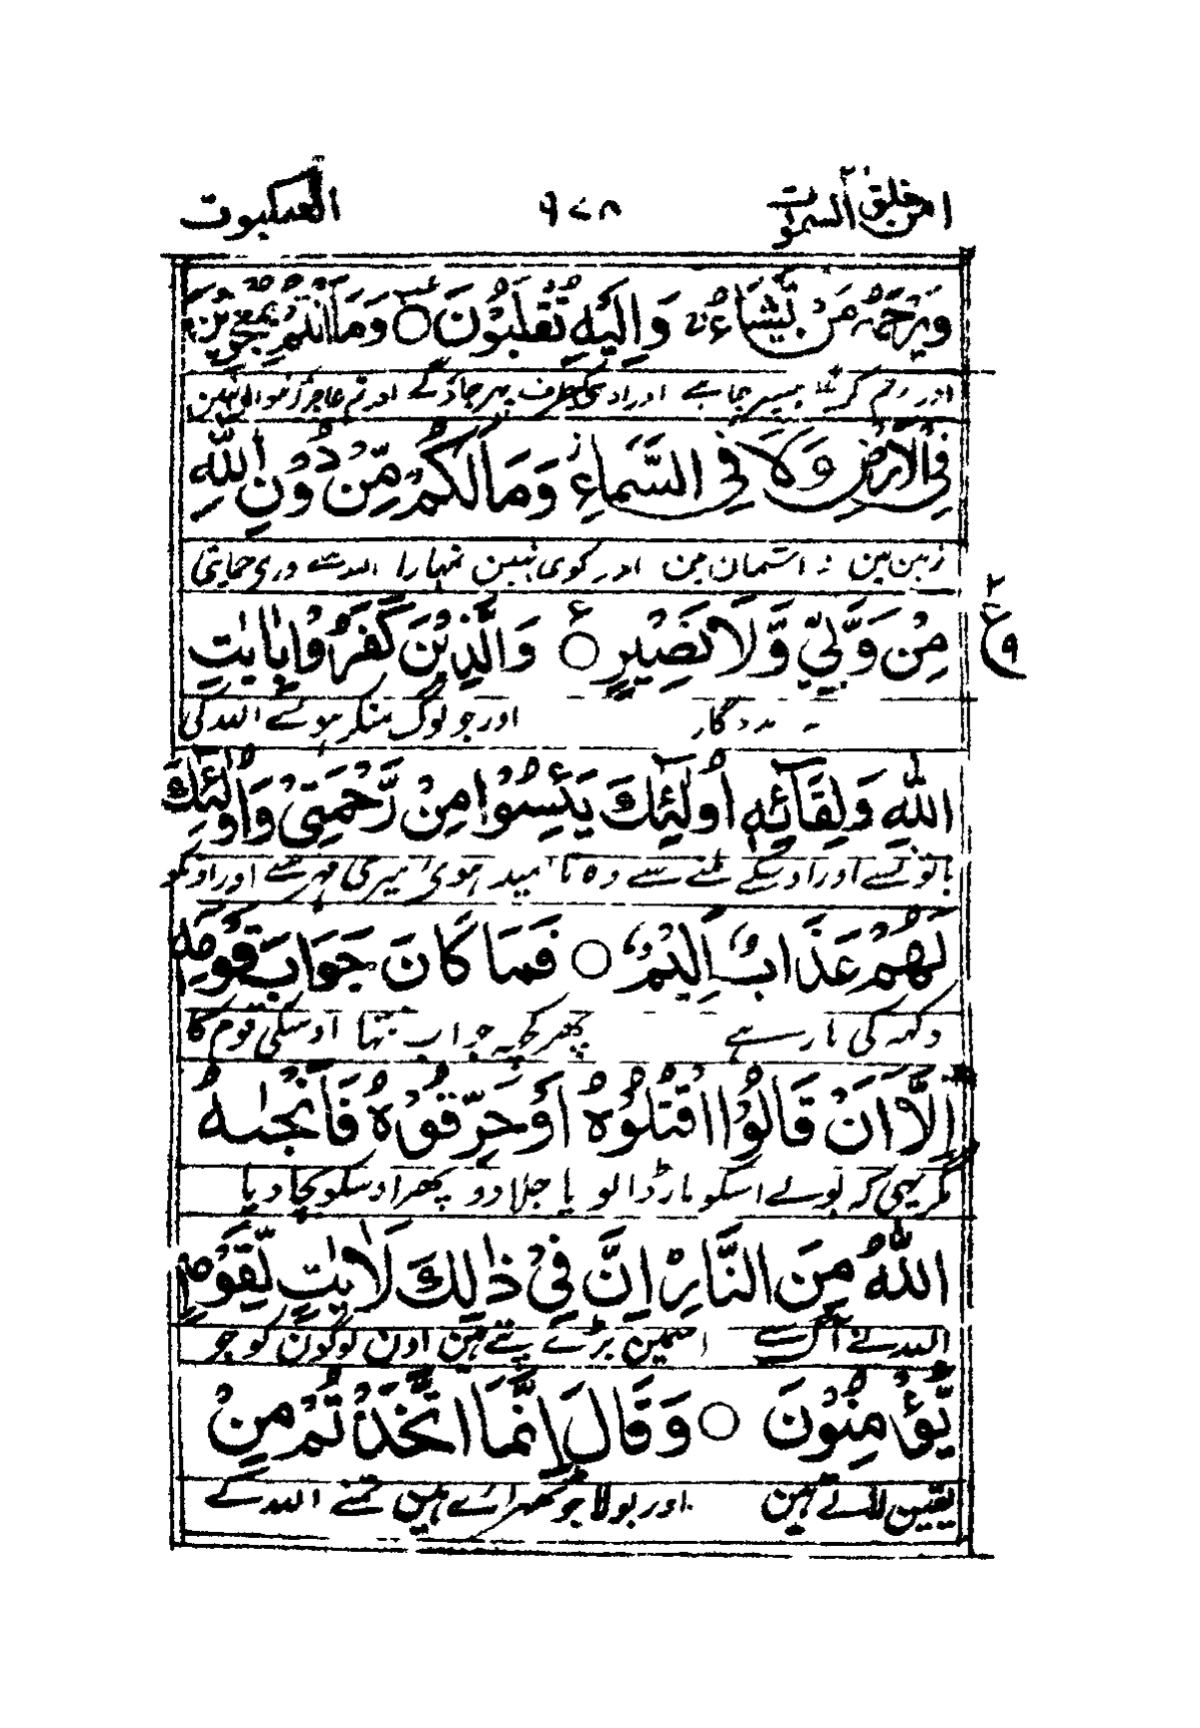 امن خلق السموت ٢٠ ٩٧٨ العنكبوت
وَيَرْحَمُ مَنْ يَّشَآءُ ۚ وَاِلَيْهِ تُقْلَبُوْنَ ○ وَمَآ اَنْتُمْ بِمُعْجِزِيْنَ
اور رحم کرے جسپر چاہے اور اوسی کیطرف پھر جاؤگے اور تم عاجز کرنیوالے نہین
فِى الْاَرْضِ وَلَا فِى السَّمَآءِ ۫ وَمَا لَكُمْ مِّنْ دُوْنِ اللّٰهِ
زمین مین نہ آسمان مین اور کوی نہین تمہارا اللہ سے وری حمایتی
مِنْ وَّلِيٍّ وَّلَا نَصِيْرٍ ○ ع وَالَّذِيْنَ كَفَرُوْا بِاٰيٰتِ
نہ مددگار اور جو لوگ منکر ہوئے اللہ کی
اللّٰهِ وَلِقَآئِهٖٓ اُولٰٓئِكَ يَئِسُوْا مِنْ رَّحْمَتِىْ وَاُولٰٓئِكَ
باتونسے اور اوسکے ملنے سے وہ نا امید ہوی میری مہر سے اور اونکو
لَهُمْ عَذَابٌ اَلِيْمٌ ○ فَمَا كَانَ جَوَابَ قَوْمِهٖٓ
دکھہ کی مار ہے پھر کچھہ جواب نتھا اوسکی قوم کا
اِلَّآ اَنْ قَالُوا اقْتُلُوْهُ اَوْ حَرِّقُوْهُ فَاَنْجٰىهُ
مگر یہی کہ بولے اسکو مار ڈالو یا جلا دو پھر اوسکو بچا دیا
اللّٰهُ مِنَ النَّارِ ۭ اِنَّ فِىْ ذٰلِكَ لَاٰيٰتٍ لِّقَوْمٍ
اللہ نے آگ سے اسمین بڑے پتے ہین اون لوگون کو جو
يُّؤْمِنُوْنَ ○ وَقَالَ اِنَّمَا اتَّخَذْتُمْ مِّنْ
یقین لاتے ہین اور بولا جو ٹھہرائے ہین تمنے اللہ کے